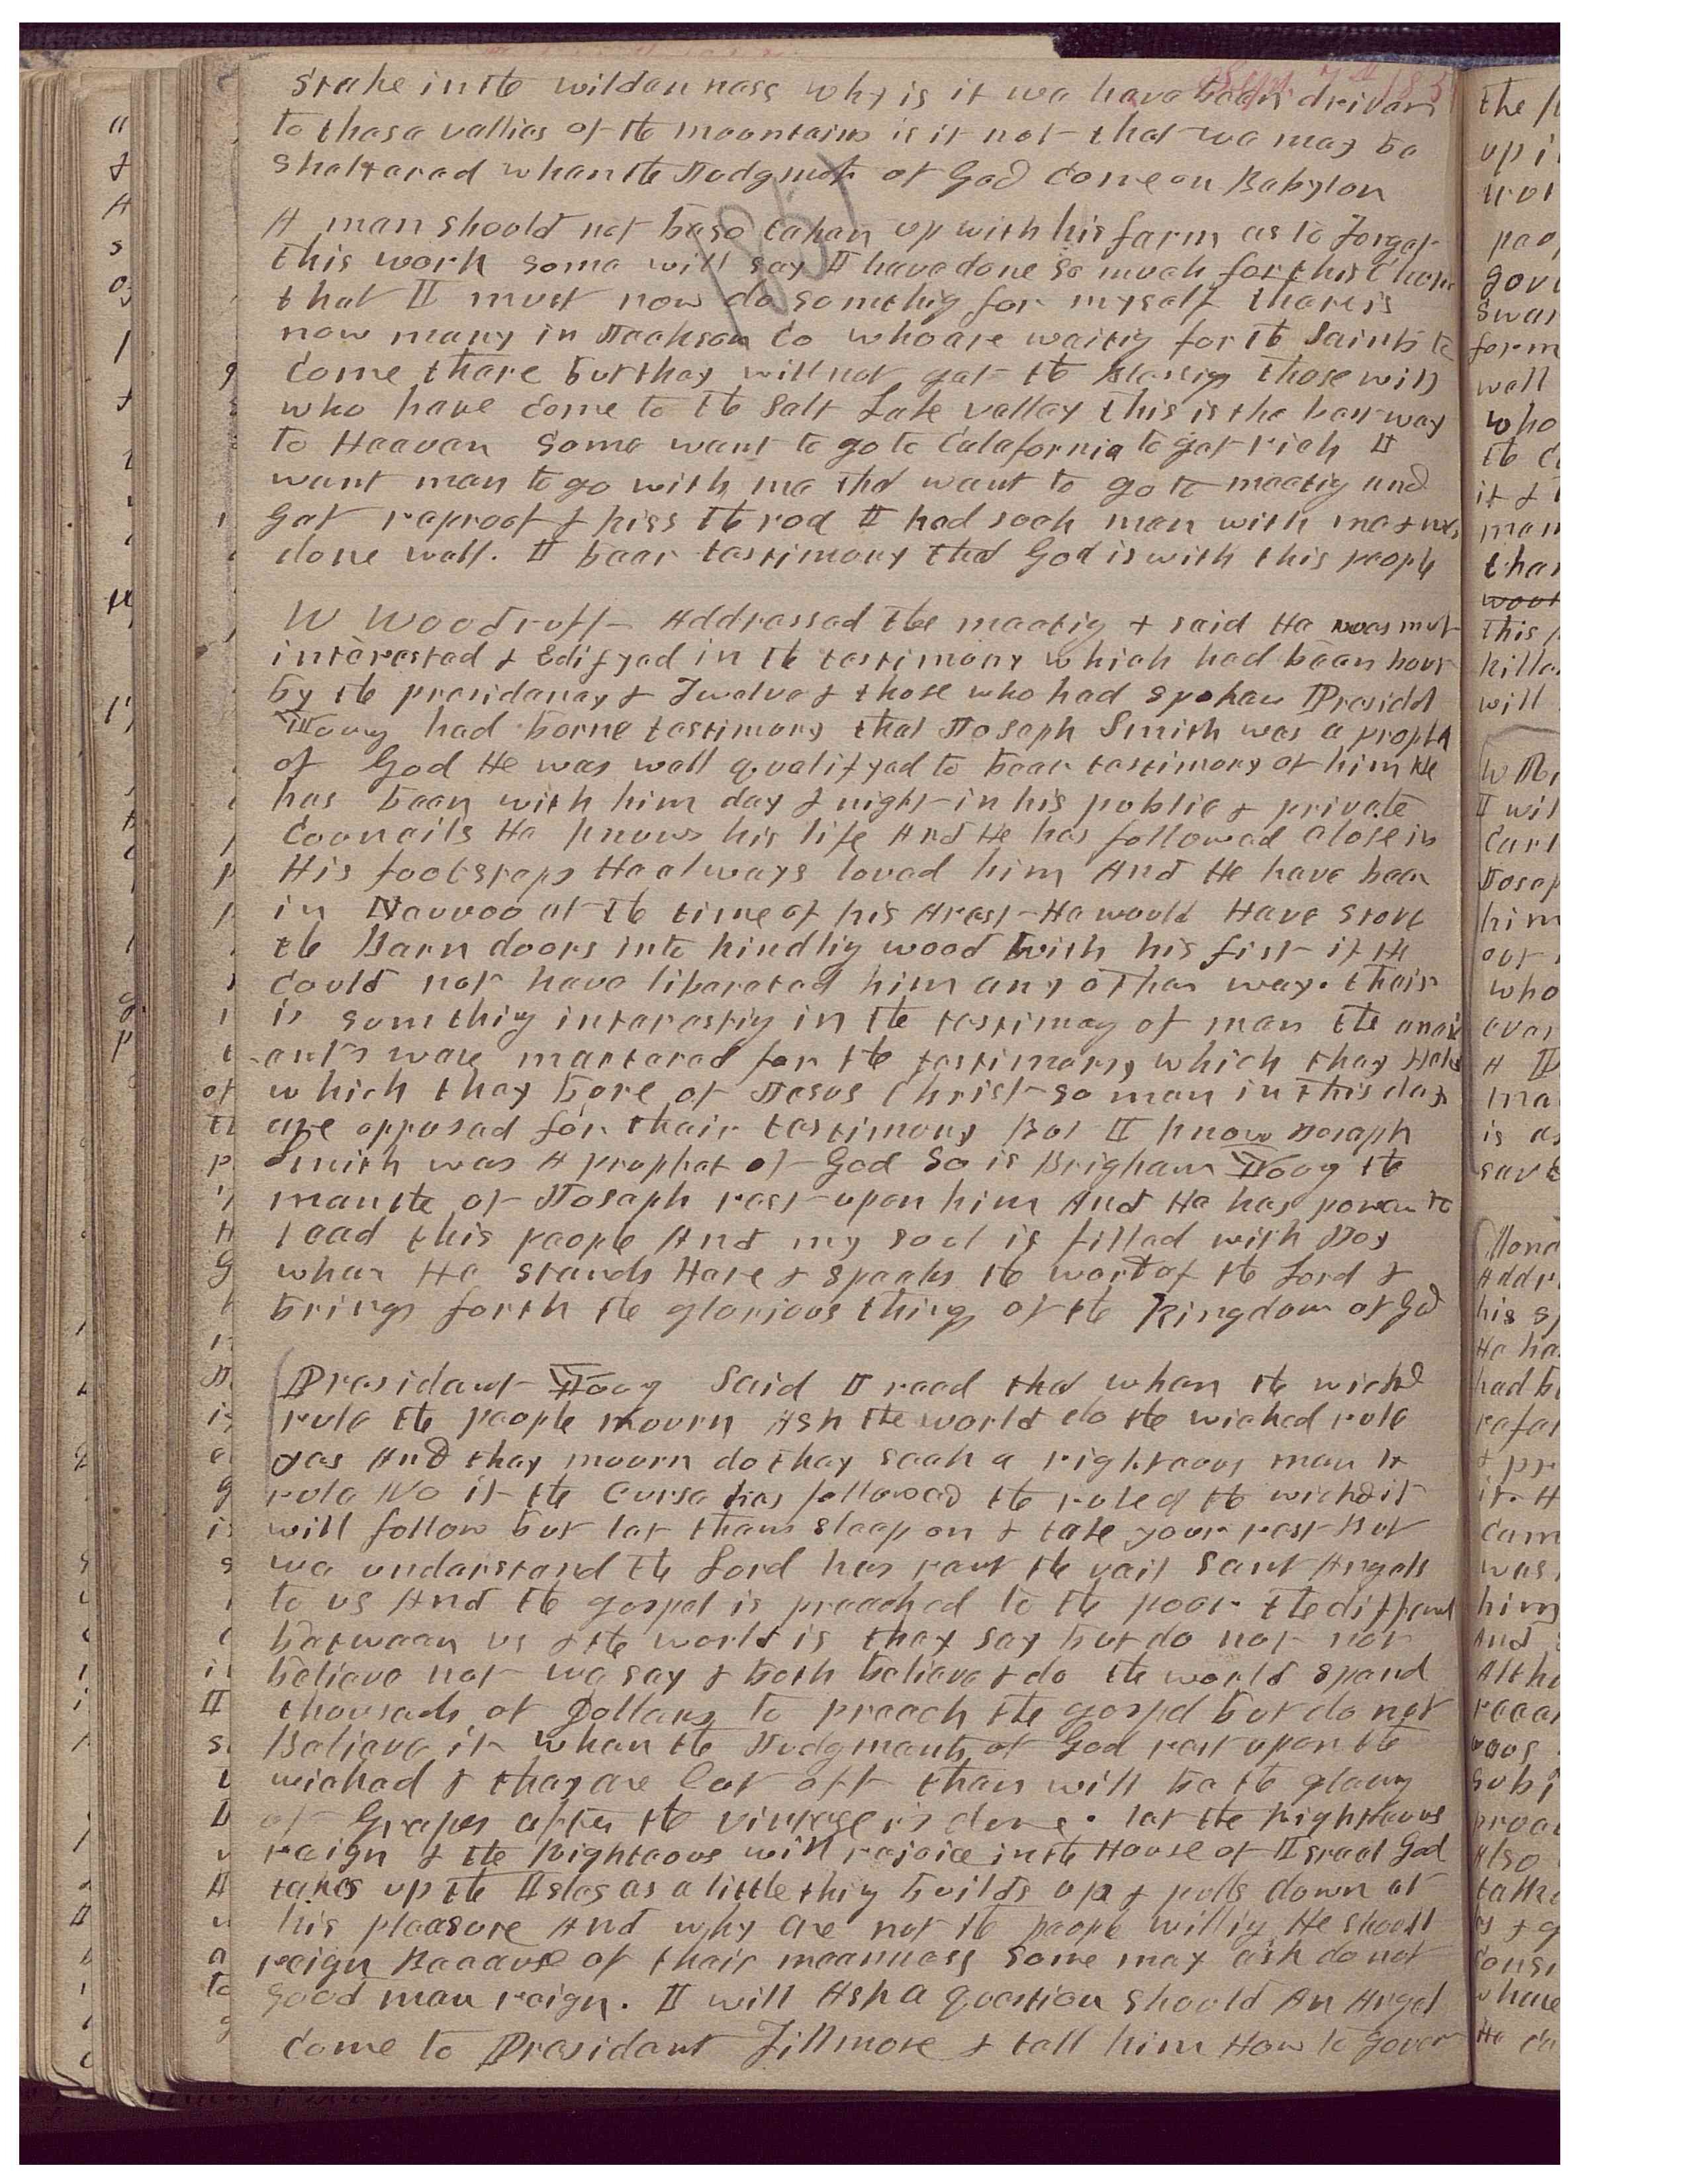 Sept 7th 185
Stake in the wilderness why is it we have been driven
to these vallies of the mountains is it not that we may be
Sheltered when the Judgmets of God Come on Babylon
1851
A man should not be so taken up with his farm as to Forget
this work some will say I have done so much for this Church
that I must now do somethig for myself there is
now many in Jackson Co who are waitig for the Saints to
Come there but they will not get the blessig those will
who have Come to the Salt Lake valley this is the best way
to Heaven Some want to go to Calafornia to get rich I
want men to go with me that want to go to meetig and
Get reproof & kiss the rod I had such men with me &
done well. I bear testimony that God is with this people
W Woodruff Addressed the meetig & said He was much
interested & Edifyed in the testimony which had been bour
by the presidency & Twelve & those who had spoken Presidet
Young had borne testimony that Joseph Smith was a propet
of God He was well qualifyed to bear testimony of him He
has been with him day & night in his public & private
Councils He knows his life And He has followed close in
His footsteps He always loved him And He have been
in Nauvoo at the time of his Arest He would Have stove
the Barn doors into kindlig wood with his fist if He
Could not have liberated him any other way. their
is somthing interestig in the testimoy of men the anci
ants ware martered for the testimony which they
which they bore of Jesus Christ so men in this day
are opposed for their testimony But I know Joseph
Smith was A prophet of God So is Brigham Young the
mantle of Joseph rest upon him And He has power to
lead this people And my soul is filled with Joy
when He stands Here & speaks the word of the Lord &
brings forth the glorious things of the Kingdom of God
President Young Said I read that when the wicked
rule the people mourn Ask the world do the wicked rule
yes And they mourn do they seek a righteous man to
rule No if the Curse has followed the rule of the wicked it
will follow but let them sleep on & take your rest But
we understand the Lord has rent the vail Sent Angels
to us And the gospel is preached to the poor the differet
between us & the world is they say but do not nor
believe not we say & both believe & do the world spend
thousads of Dollars to preach the gospel but do not
Believe it when the Judgments of God rest upon the
wicked & they are Cut off then will be the gleany
of Grapes after the vintage is done. let the Righteous
reign & the Righteous will rejoice in the House of Israel God
takes up the Isles as a little thig builds up & pulls down at
his pleasure And why are not the people willig He should
reign Because of their meanness Some may ask do not
good men reign. I will Ask a question should An Angel
Come to President Fillmore & tell him How to gover